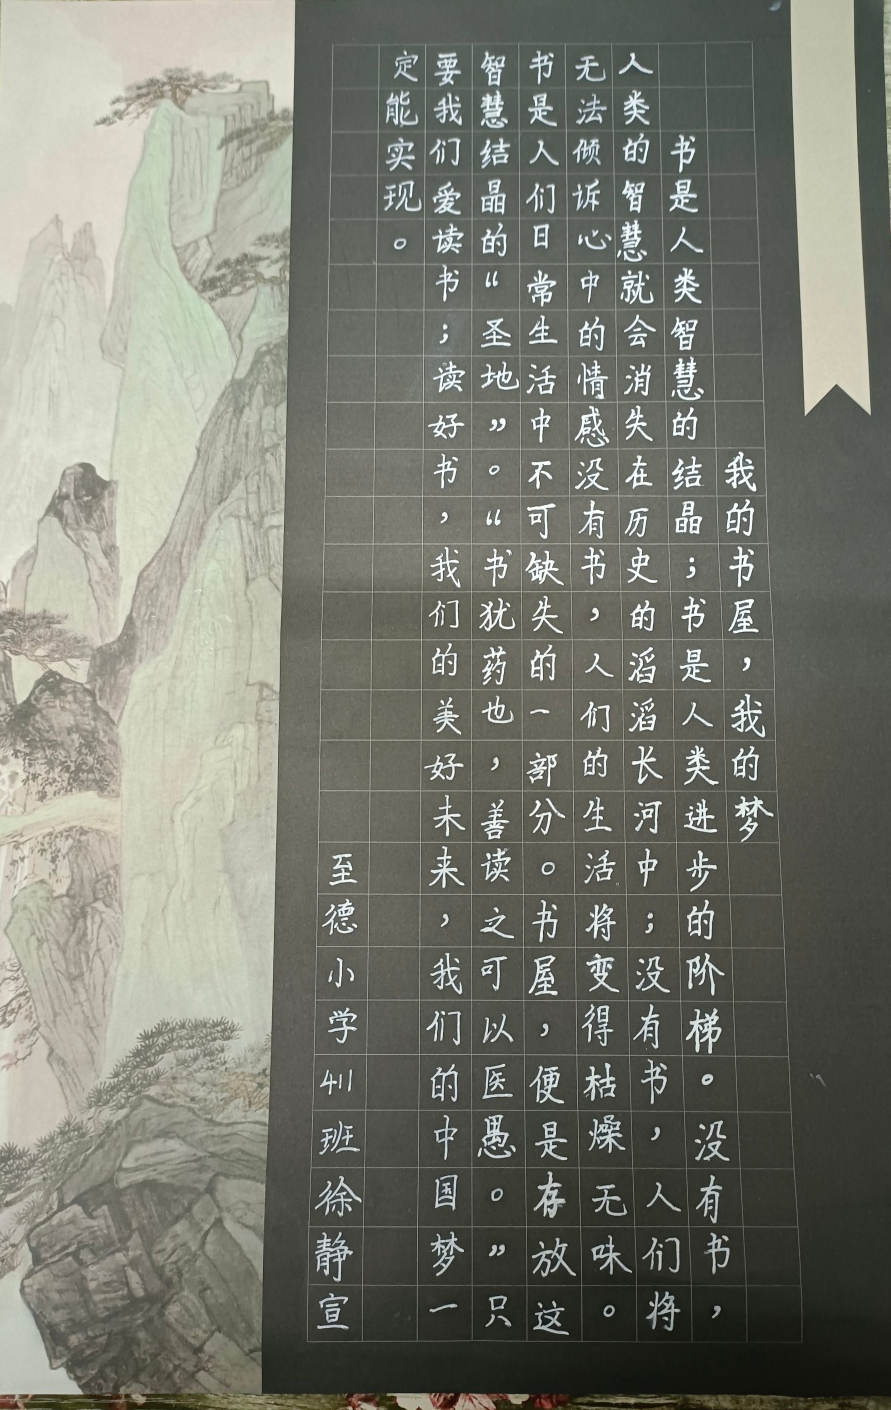 我的书屋，我的梦
书是人类智慧的结晶；书是人类进步的阶梯。没有书，
人类的智慧就会消失在历史的滔滔长河中；没有书，人们将
无法倾诉心中的情感没有书，人们的生活将变得枯燥无味。
书是人们日常生活中不可缺失的一部分。书屋，便是存放这
智慧结晶的“圣地”。“书犹药也，善读之可以医愚。”只
要我们爱读书；读好书，我们的美好未来，我们的中国梦一
定能实现。
至德小学411班徐静宣